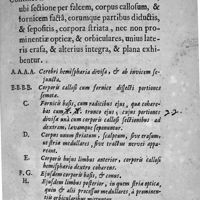 ubi sectione per falcem, corpus callosum, &
fornicem facta, eorumque partibus diductis,
& sepositis, corpora striata, nec non pro-
minentiæ opticæ, & orbiculares, unius late-
ris erasa, & alterius integra, & plana exhi-
bentur.
A.A.A.A. Cerebri hemisphæria divisa, & ab invicem se-
juncta.
B.B.B.B. Corporis callosi cum fornice dissecti portiones
semota.
C. Fornicis basis, cum radicibus ejus, quæ cohære-
bat cum trunco ejus, cujus portiones 22.
divisæ unà cum corporis callosi sectionibus ad
dextram, levamque seponuntur.
D. Corpus unum striatum, scalptum, sive erasum,
ut striæ medullares, sive tractus nervosi appa-
reant.
E. Corporis hujus limbus anterior, corporis callosi
hemisphærio dextro cohærens.
F. G. Ejusdem corporis basis, & conus.
H. Ejusdem limbus posterior, in quem stria optica,
quæ è sibi processus medullares, à prominen-
tiis orbicularibus